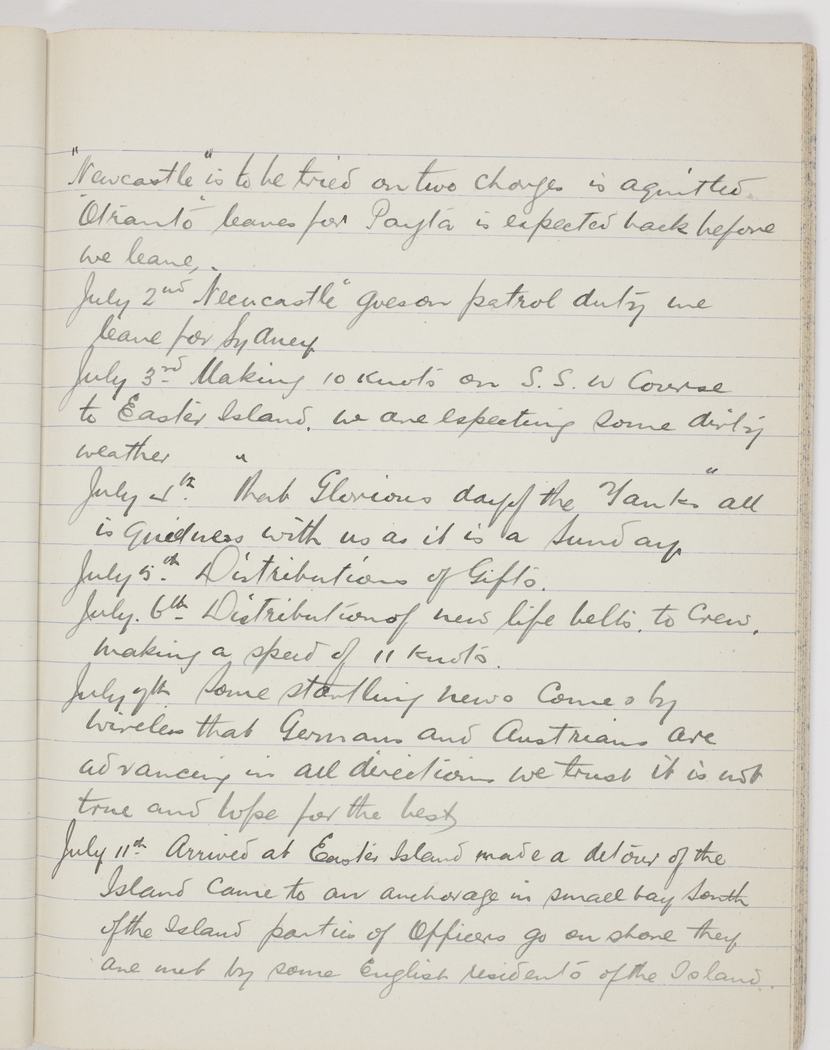 "Newcastle" is to be tried on two charges is aquitted
"Otranto" leaves for Payta is expected back before
we leave,
July 2nd "Newcastle" goes on patrol duty we
leave for Sydney
July 3rd Making 10 Knots on S. S. W Course
to Easter Island. we are expecting some dirty
weather
July 4th. "that Glorious day of the Yanks" all
is quiedness with us as it is a Sunday
July 5th Distributions of Gifts.
July. 6th Distribution of new life belts. to Crew.
making a speed of 11 Knots.
July 7th Some startling news comes by
wireless that Germans and Austrians are
advancing in all directions we trust it is not
true and hope for the best
July 11th Arrived at Easter Island made a detour of the
Island Came to an anchorage in small bay South
of the Island parties of Officers go on shore they
are met by some English residents of the Island.